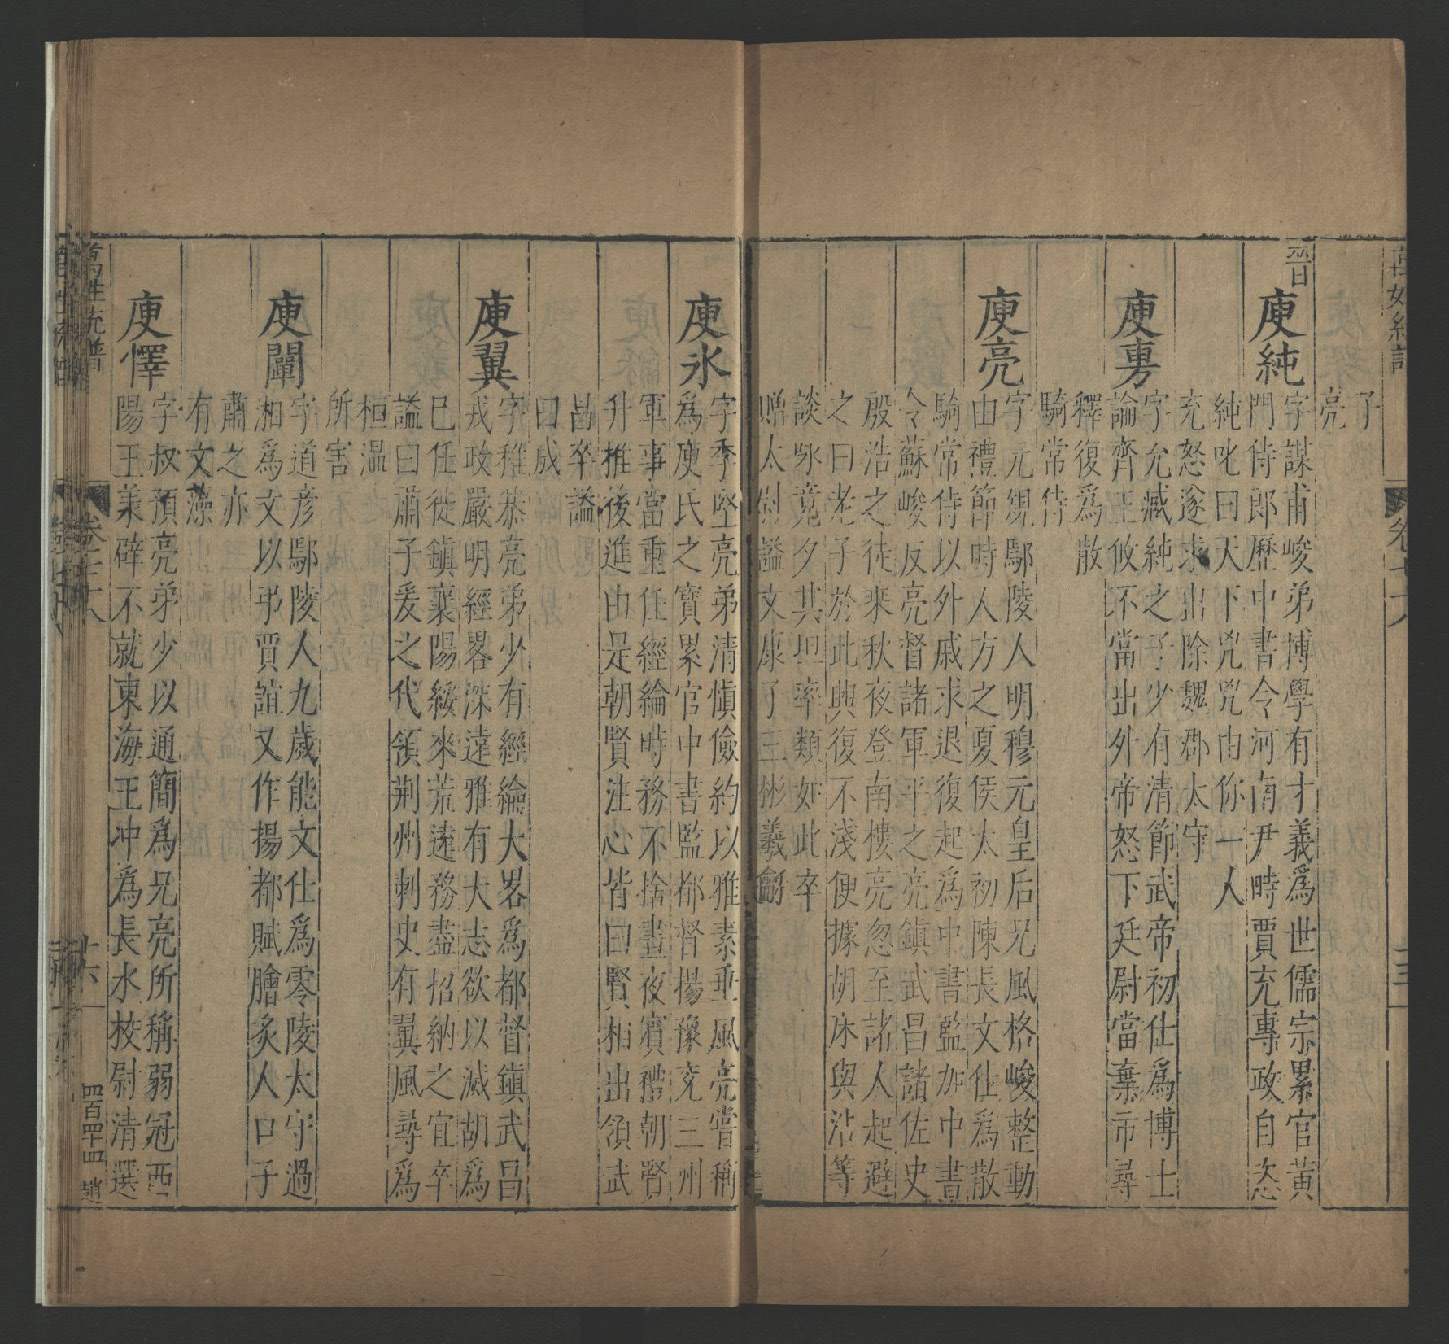 子
亮
晉
庾純
字謀甫峻弟博學有才義爲世儒宗累官黄
門侍郎歷中書令河南尹時賈充專政自恣
純叱曰天下兇兇由你一人
充怒遂求出除魏郡太守
庾旉
字允臧純之子少有清節武帝初仕爲博士
論齊王攸不當出外帝怒下廷尉當棄市尋
釋復爲散
騎常侍
庾亮
字元規鄢陵人明穆元皇后兄風格峻整動
由禮節時人方之夏侯太初陳長文仕爲散
騎常侍以外戚求退復起爲中書監加中書
令蘇峻反亮督諸軍平之亮鎮武昌諸佐史
殷浩之徒乘秋夜登南樓亮忽至諸人起避
之曰老子於此興復不淺便據胡床與浩等
談咏竟夕其坦率類如此卒
贈太尉謚文康子三彬羲龢
庾氷
字季堅亮弟清慎儉約以雅素垂風亮嘗稱
爲庾氏之寳累官中書監都督揚豫兗三州
軍事當重任經綸時務不捨晝夜賓禮朝賢
升推後進由是朝賢注心皆曰賢相出領武
昌卒謚
曰成
庾翼
字稚恭亮弟少有經綸大畧爲都督鎮武昌
戎政嚴明經畧深遠雅有大志欲以滅胡爲
已任徙鎮襄陽綏來荒遠務盡招納之宜卒
謚曰肅子爰之代領荆州刺史有翼風尋爲
桓温
所害
庾闡
字道彦鄢陵人九歲能文仕爲零陵太守過
湘爲文以弔賈誼又作揚都賦膾炙人口子
肅之亦
有文藻
庾懌
字叔預亮弟少以通簡爲兄亮所稱弱冠西
陽王羕辟不就東海王冲爲長水校尉清選
萬姓統譜
卷七十八
十六
四百四十四
趙